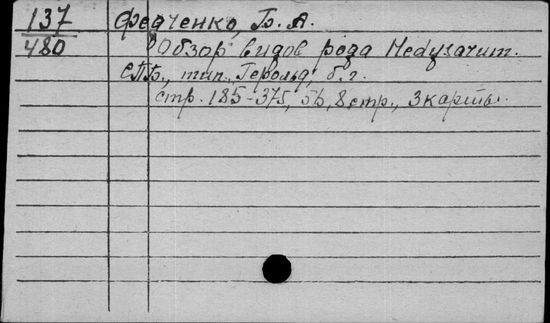 137 Федченко, Б. А.
480 Обзор видов рода Hedysarum.
СПб., тип., Герольд, б. г.
стр. 185-375, 56, 8 стр., 3 карты.